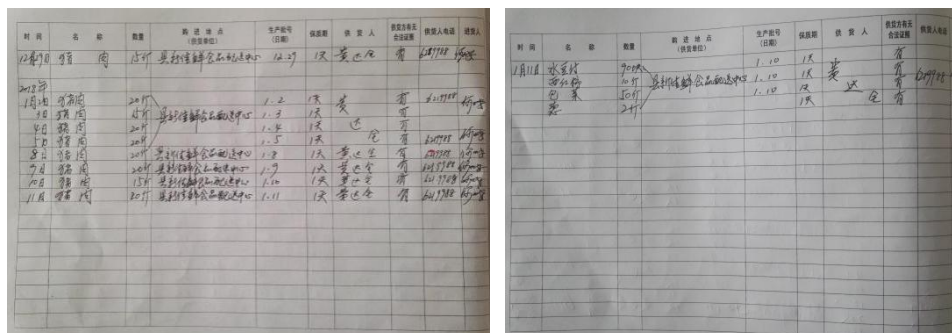 时间 名称 数量 购进地点(供货单位) 生产批号(日期) 保质期 供货人 供货方有无合法证照 供货人电话 进货人
12月29日 猪肉 15斤 县新佳鲜食品配送中心 12.29 1天 黄达全 有 6219988
2018年
1月2日 猪肉 20斤 1.2 1天 黄 有 6219988
3日 猪肉 15斤 县新佳鲜食品配送中心 1.3 1天 有
4日 猪肉 20斤 1.4 1天 达 有
5日 猪肉 20斤 1.5 1天 全 有 6219988
8日 猪肉 20斤 县新佳鲜食品配送中心 1.8 1天 黄达全 有 6219988
9日 猪肉 20斤 县新佳鲜食品配送中心 1.9 1天 黄达全 有 6219988
10日 猪肉 15斤 县新佳鲜食品配送中心 1.10 1天 黄达全 有 6219988
11日 猪肉 20斤 县新佳鲜食品配送中心 1.11 1天 黄达全 有 6219988
时间 名称 数量 购进地点(供货单位) 生产批号(日期) 保质期 供货人 供货方有无合法证照 供货人电话
1月11日 水豆付 90块 1.10 1天 有
西红柿 10斤 县新佳鲜食品配送中心 1.10 1天 黄 有 6219988
包菜 50斤 1.10 1天 达 有
葱 2斤 1天 全 有